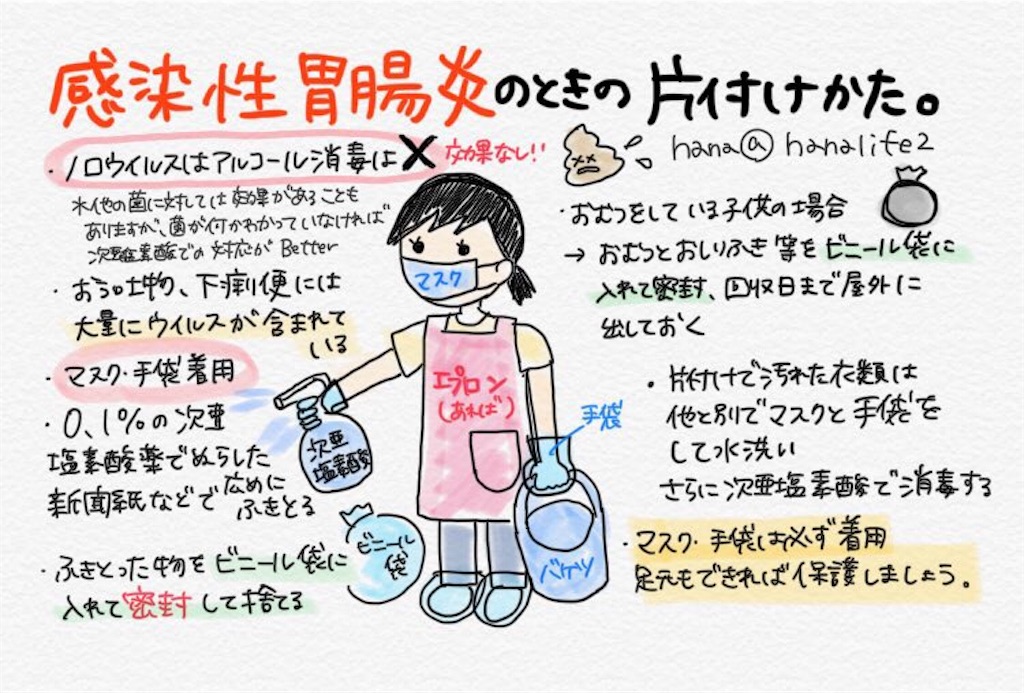 感染性胃腸炎のときの片付けかた。
・ノロウイルスはアルコール消毒は✕ 効果なし!!
※他の菌に対しては効果があることも
ありますが、菌が何かわかっていなければ
次亜塩素酸での対応が Better
・おう吐物、下痢便には
大量にウイルスが含まれて
いる
・マスク・手袋着用
・0、1%の次亜
塩素酸薬でぬらした
新聞紙などで広めに
ふきとる
・ふきとった物をビニール袋に
入れて密封して捨てる
マスク
エプロン
(あれば)
次亜
塩素酸
手袋
ビニール
袋
バケツ
hana@hanalife2
・おむつをしている子供の場合
→おむつとおしりふき等をビニール袋に
入れて密封、回収日まで屋外に
出しておく
・片付けで汚れた衣類は
他と別でマスクと手袋を
して水洗い
さらに次亜塩素酸で消毒する
・マスク・手袋は必ず着用
足元もできれば保護しましょう。